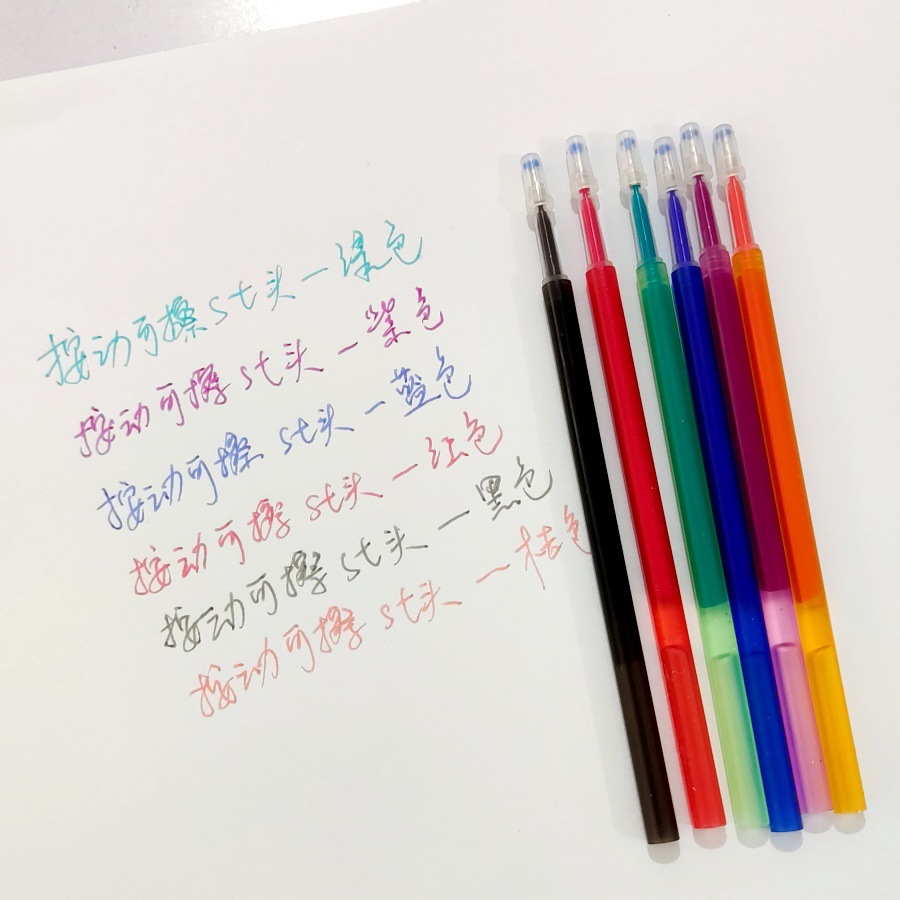 按动可擦St头一绿色
按动可擦St头一紫色
按动可擦St头一蓝色
按动可擦St头一红色
按动可擦St头一黑色
按动可擦St头一桔色